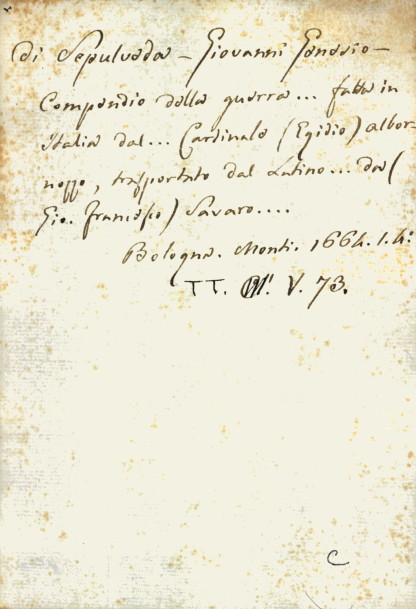 di Sepulveda - Giovanni Genesio -
Compendio della guerra... fatta in
Italia dal... Cardinale (Egidio) Albor-
nozzo, trasportato dal Latino... da (
Gio. Francesco) Savaro....
Bologna. Monti. 1664. 1. 4:
TT. V. 73.
C